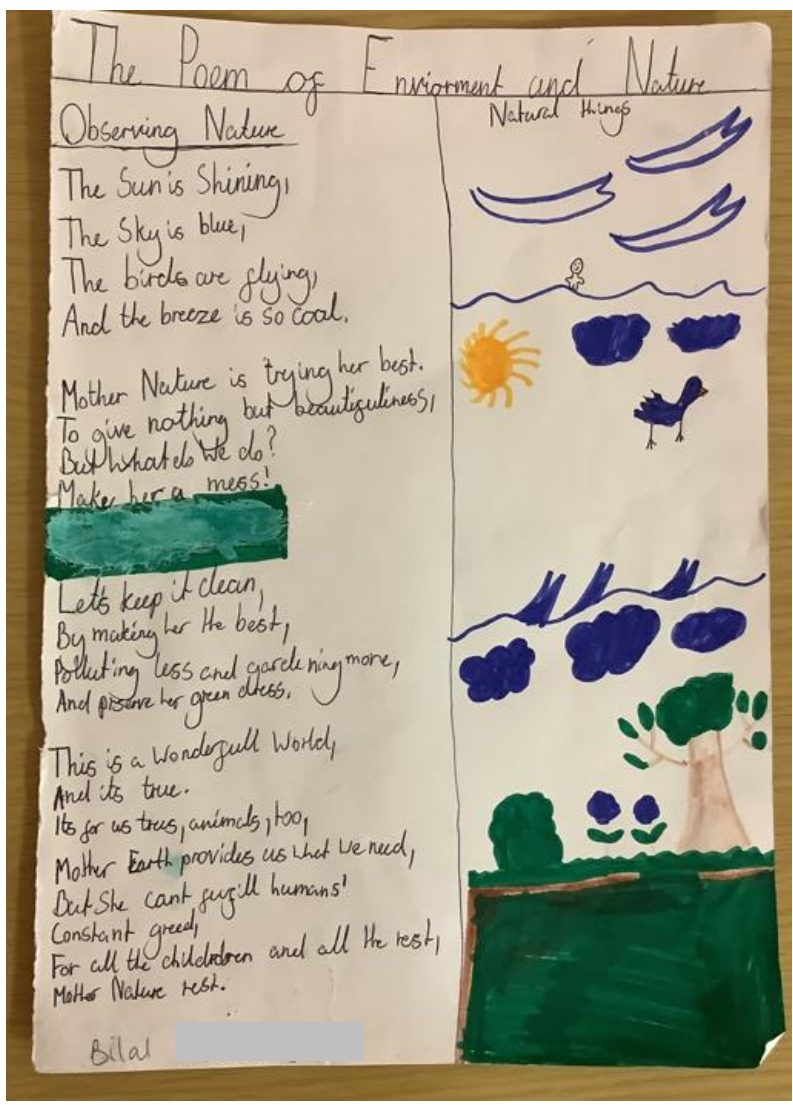 The Poem of Enviorment and Nature
Observing Nature
The Sun is Shining,
The Sky is blue,
The birds are flying,
And the breeze is so coal.
Mother Nature is trying her best.
To give nothing but beautifuliness,
But what do we do?
Make her a mess!
Let's keep it clean,
By making her the best,
Polluting less and gardening more,
And prserve her green dress.
This is a wonderfull world,
And its true.
Its for us trees, animals, too,
Mother Earth provides us what we need,
But She cant fugill humans'
Constant greed,
For all the childrdren and all the rest,
Mother Nature rest.
Bilal
Natural things